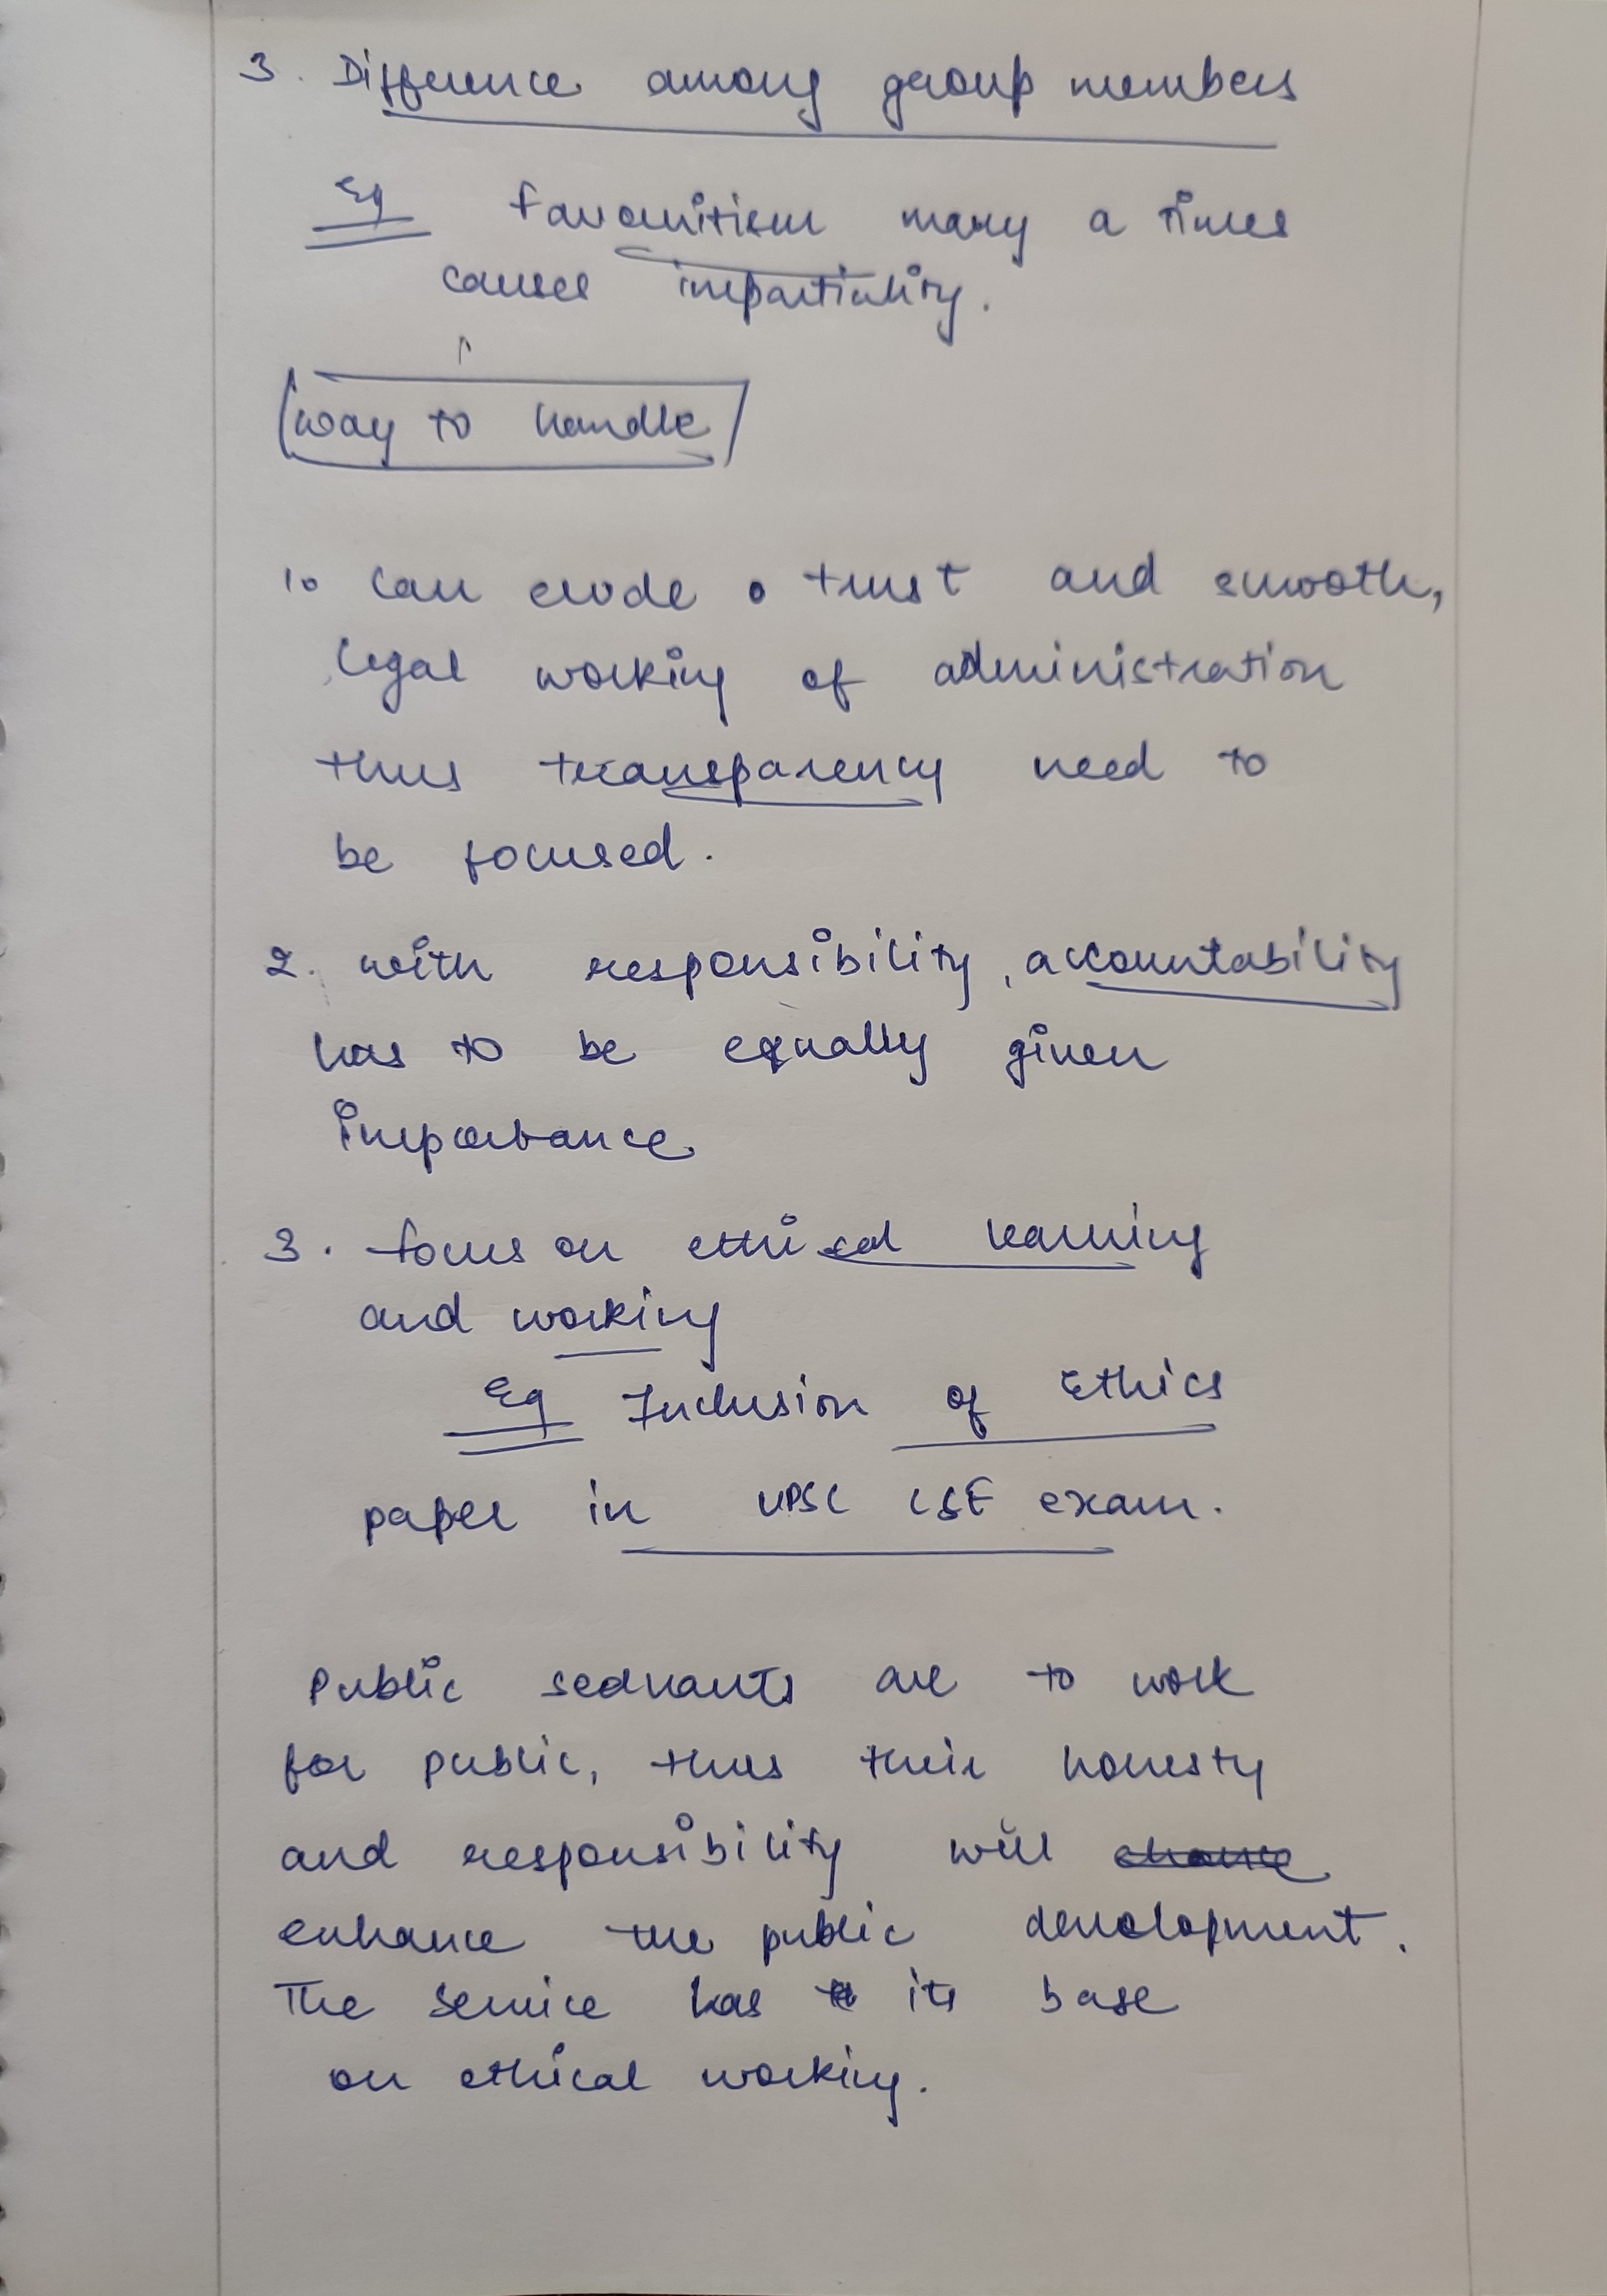 3. Difference among group members
Eg favouritism many a times
causes impartiality.
way to handle
1. Can erode trust and smooth,
legal working of administration
thus transparency need to
be focused.
2. with responsibility, accountability
has to be equally given
importance
3. focus on ethical learning
and working
Eg Inclusion of Ethics
paper in UPSC CSE exam.
Public sedvants are to work
for public, thus their honesty
and responsibility will
enhance the public development.
The service has its base
on ethical working.